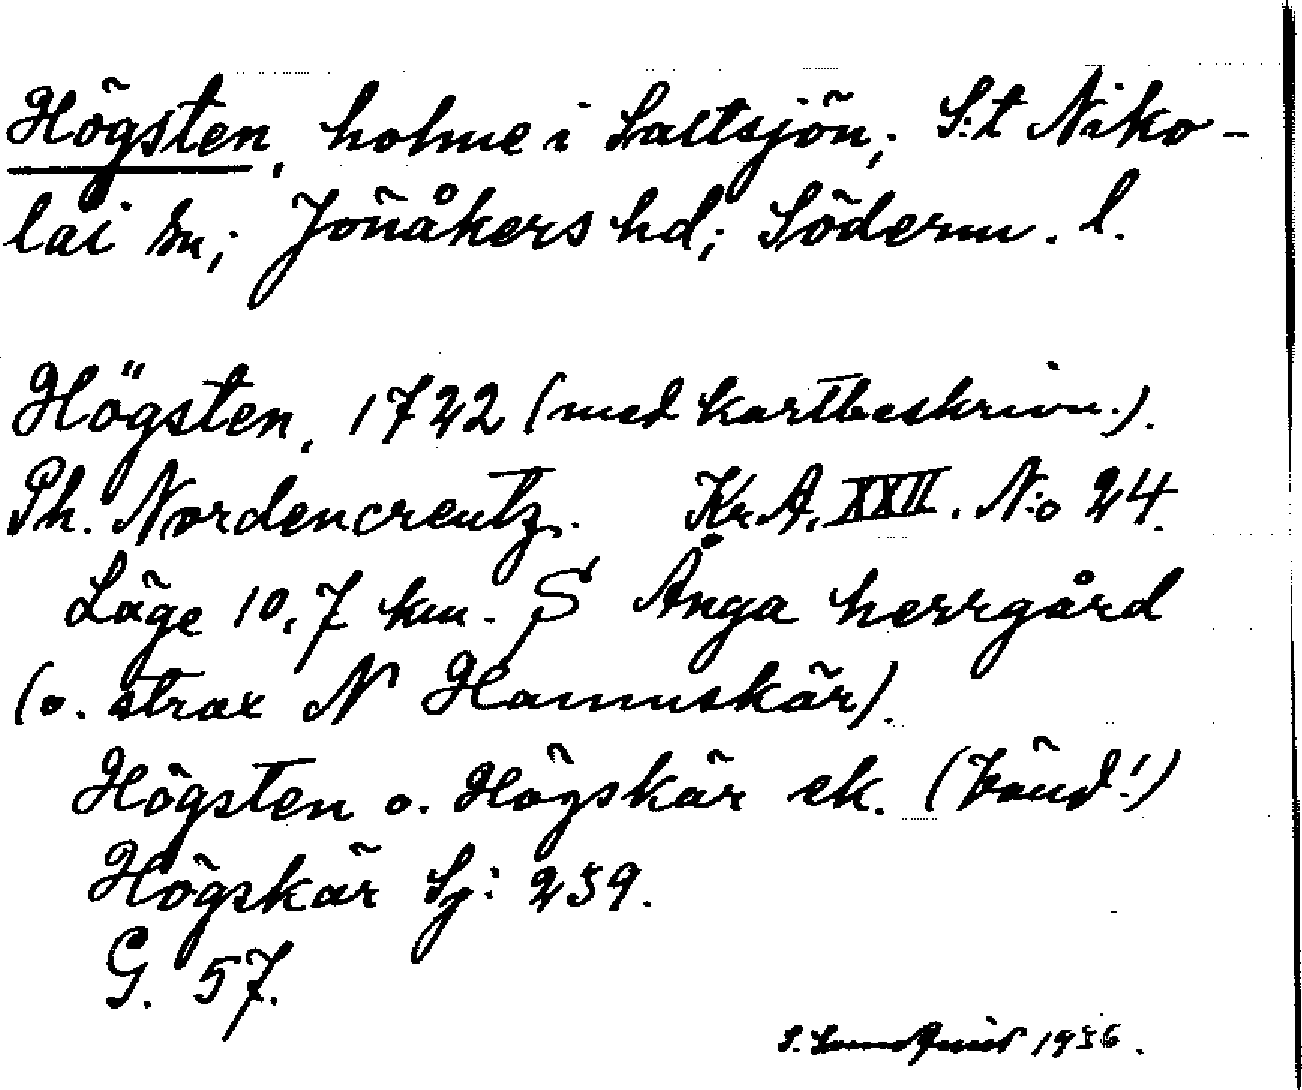 Högsten, holme i Saltsjön; S:t Niko-
lai sn; Jönåkers hd; Söderm. l.
Högsten, 1722 (med kartbeskrivn.).
Ph. Nordencreutz. Kr.A. XXII. N:o 24.
Läge 10,7 km. S Ånga herrgård
(o. strax N Hamnskär).
Högsten o. Högskär ek. (känd!)
Högskär Sj: 259.
G. 57.
S. 1936.